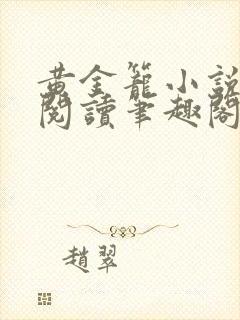 黃金籠小說
閱讀筆趣閣
趙翠